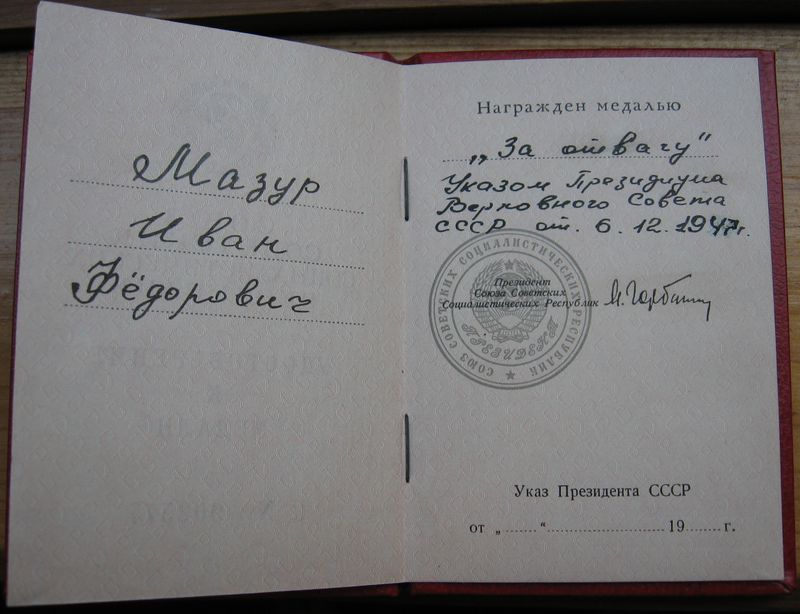 Мазур
Иван
Фёдорович
Награжден медалью
„За отвагу"
Указом Президиума
Верховного Совета
СССР от. 6.12.1947г.
СОЮЗ СОВЕТСКИХ СОЦИАЛИСТИЧЕСКИХ РЕСПУБЛИК
ПРЕЗИДЕНТ
Президент
Союза Советских
Социалистических Республик
М. Горбачев
Указ Президента СССР
от „ “ 19 г.